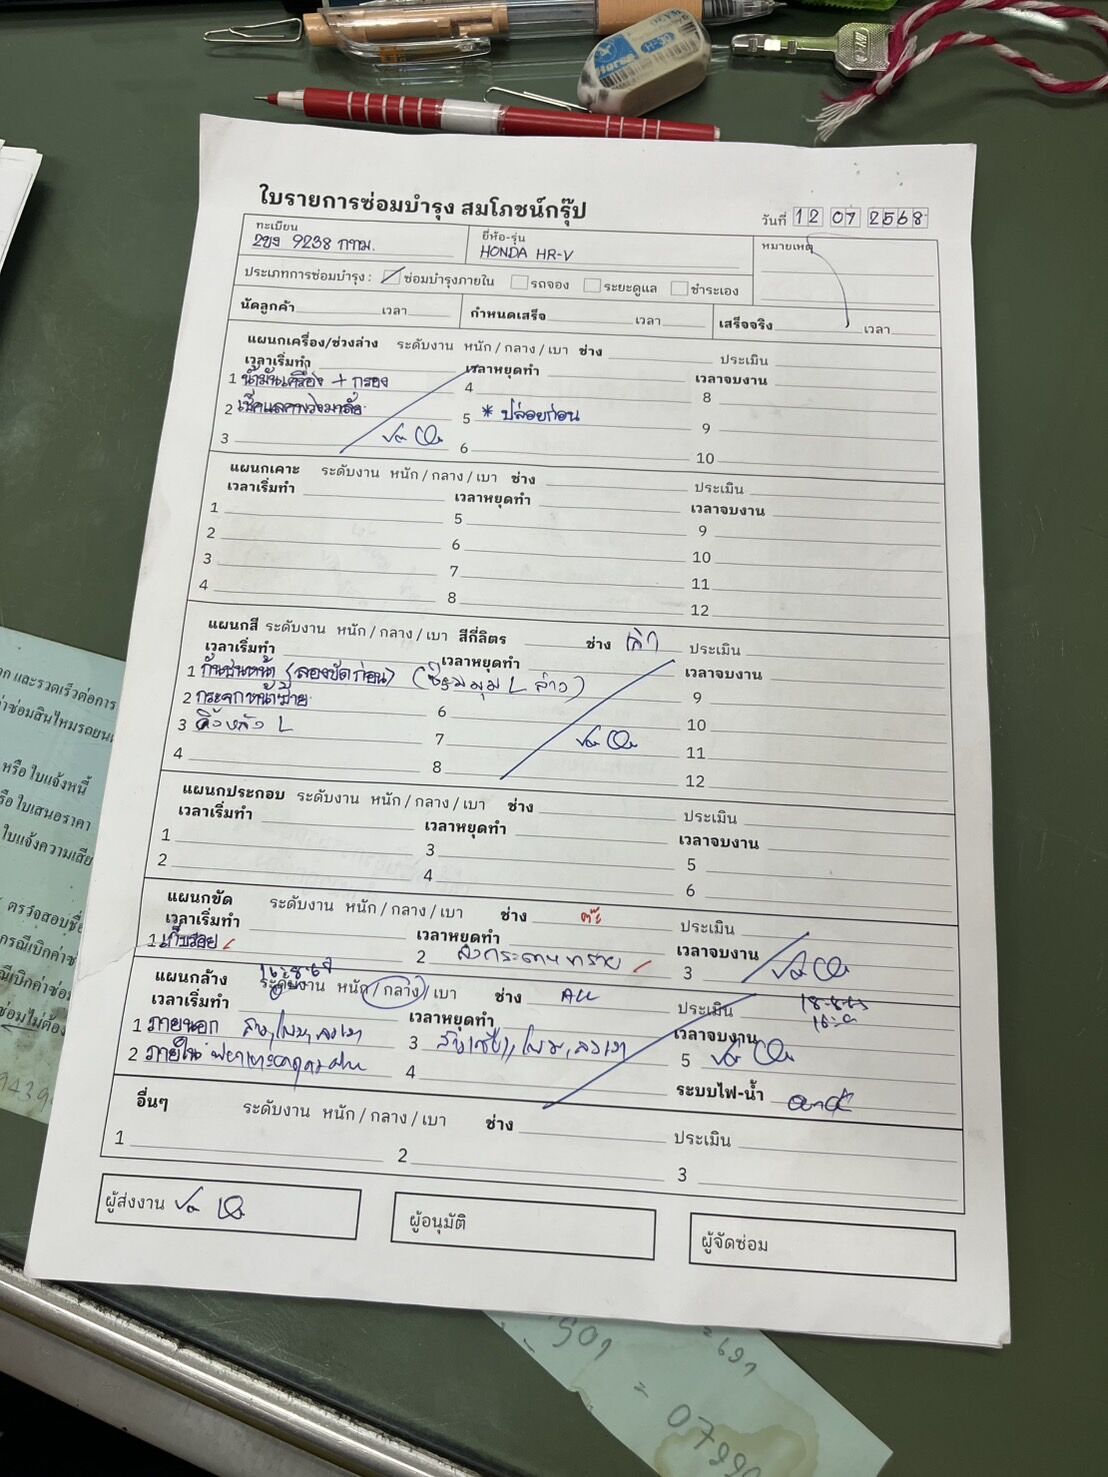 ใบรายการซ่อมบำรุง สมโภชน์กรุ๊ป
วันที่ 12 07 2568
ทะเบียน 2ขง 9238 กทม.
ยี่ห้อ-รุ่น HONDA HR-V
หมายเหตุ
ประเภทการซ่อมบำรุง : ซ่อมบำรุงภายใน รถจอง ระยะดูแล ชำระเอง
นัดลูกค้า เวลา กำหนดเสร็จ เวลา เสร็จจริง เวลา
แผนกเครื่อง/ช่วงล่าง ระดับงาน หนัก / กลาง / เบา ช่าง ประเมิน
เวลาเริ่มทำ เวลาหยุดทำ เวลาจบงาน
1 น้ำมันเครื่อง + กรอง 4 8
2 เช็คแลคพวงมาลัย 5 * ปล่อยก่อน 9
3 6 10
แผนกเคาะ ระดับงาน หนัก / กลาง / เบา ช่าง ประเมิน
เวลาเริ่มทำ เวลาหยุดทำ เวลาจบงาน
1 5 9
2 6 10
3 7 11
4 8 12
แผนกสี ระดับงาน หนัก / กลาง / เบา สีกี่ลิตร ช่าง ประเมิน
เวลาเริ่มทำ เวลาหยุดทำ เวลาจบงาน
1 กันชนหน้า (ลองขัดก่อน) (ซ่อมมุม L ล่าง) 9
2 กระจกหน้าซ้าย 6 10
3 คิ้วหลัง L 7 11
4 8 12
แผนกประกอบ ระดับงาน หนัก / กลาง / เบา ช่าง ประเมิน
เวลาเริ่มทำ เวลาหยุดทำ เวลาจบงาน
1 3 5
2 4 6
แผนกขัด ระดับงาน หนัก / กลาง / เบา ช่าง ประเมิน
เวลาเริ่มทำ เวลาหยุดทำ เวลาจบงาน
1 เก็บรอย 2 ลงกระดาษทราย 3
แผนกล้าง ระดับงาน หนัก / กลาง / เบา ช่าง ALL ประเมิน
เวลาเริ่มทำ เวลาหยุดทำ เวลาจบงาน
1 ภายนอก 3 5
2 ภายใน 4 ระบบไฟ-น้ำ
อื่นๆ ระดับงาน หนัก / กลาง / เบา ช่าง ประเมิน
1 2 3
ผู้ส่งงาน ผู้อนุมัติ ผู้จัดซ่อม